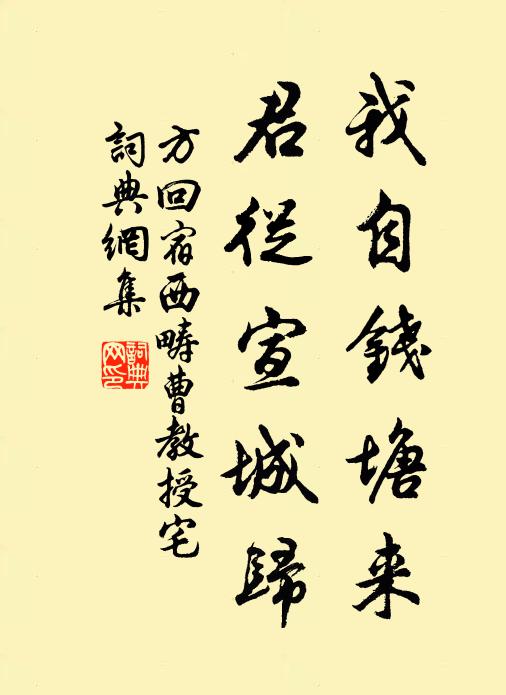 我自錢塘来
君從宣城歸
方回宿西疇曹教授宅
詞典網集
詞典網印